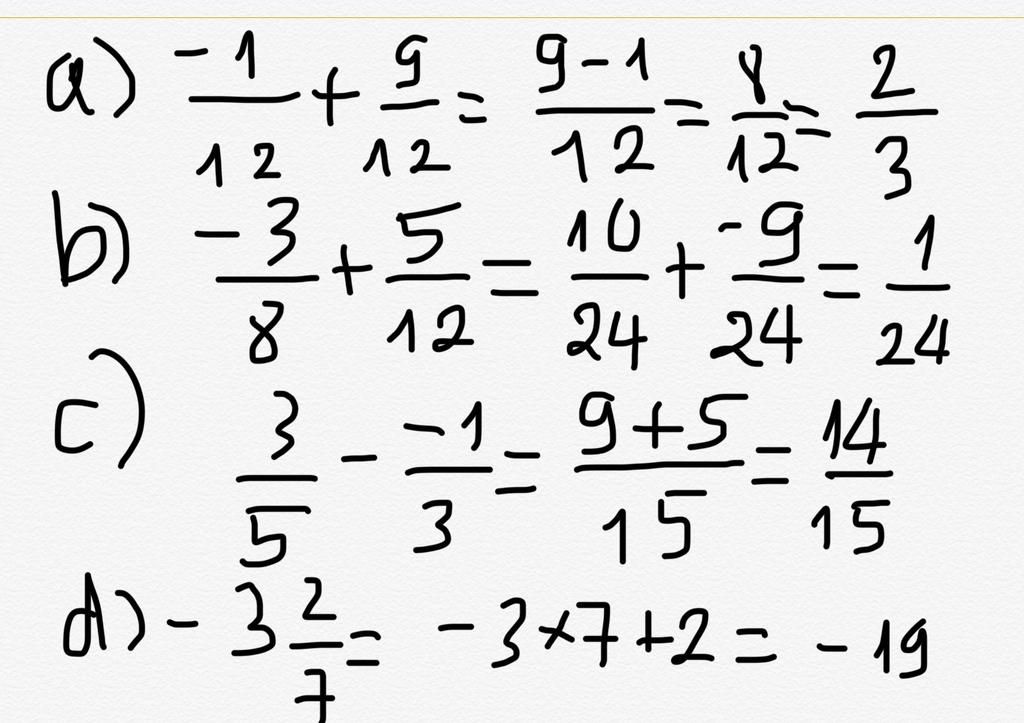 a) -1/12 + 9/12 = 9-1/12 = 8/12 = 2/3
b) -3/8 + 5/12 = 10/24 + -9/24 = 1/24
c) 3/5 - -1/3 = 9+5/15 = 14/15
d) - 3 2/7 = -3×7+2 = -19